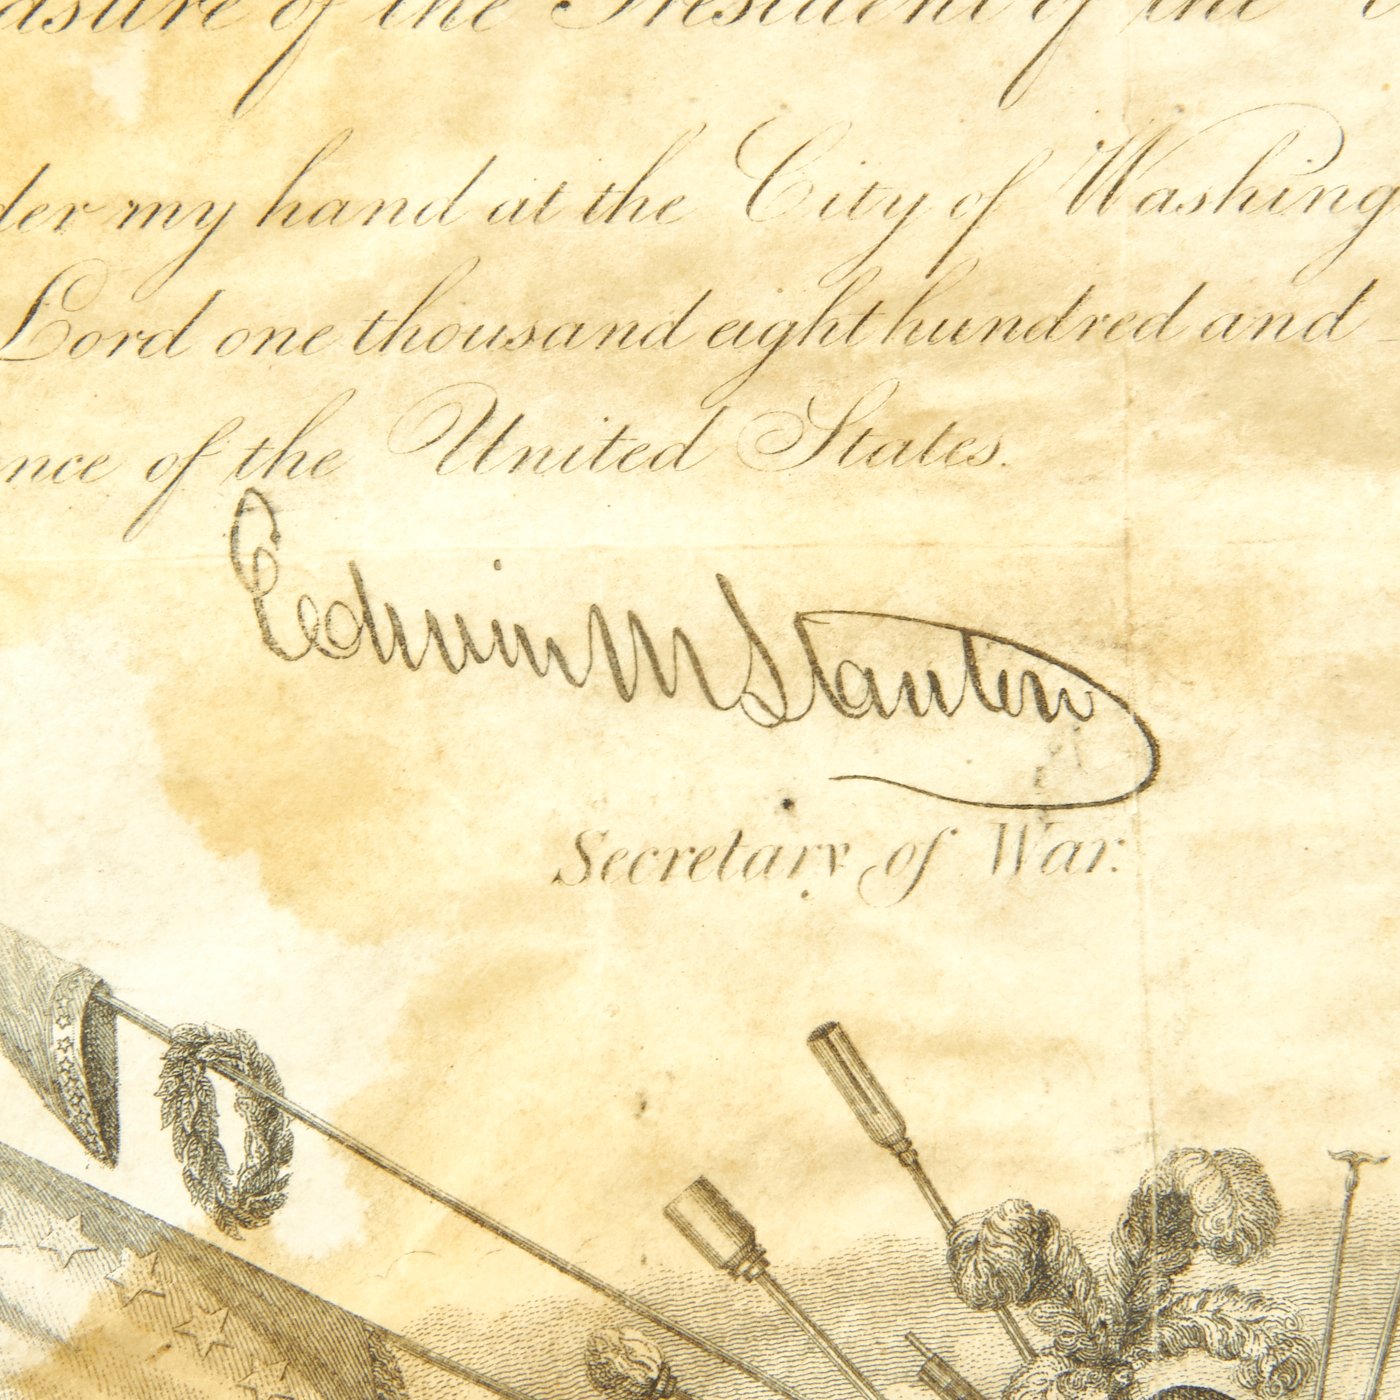 asure of the President of the
der my hand at the City of Washing
Lord one thousand eight hundred and
nce of the United States.
Edwin M Stanton
Secretary of War.